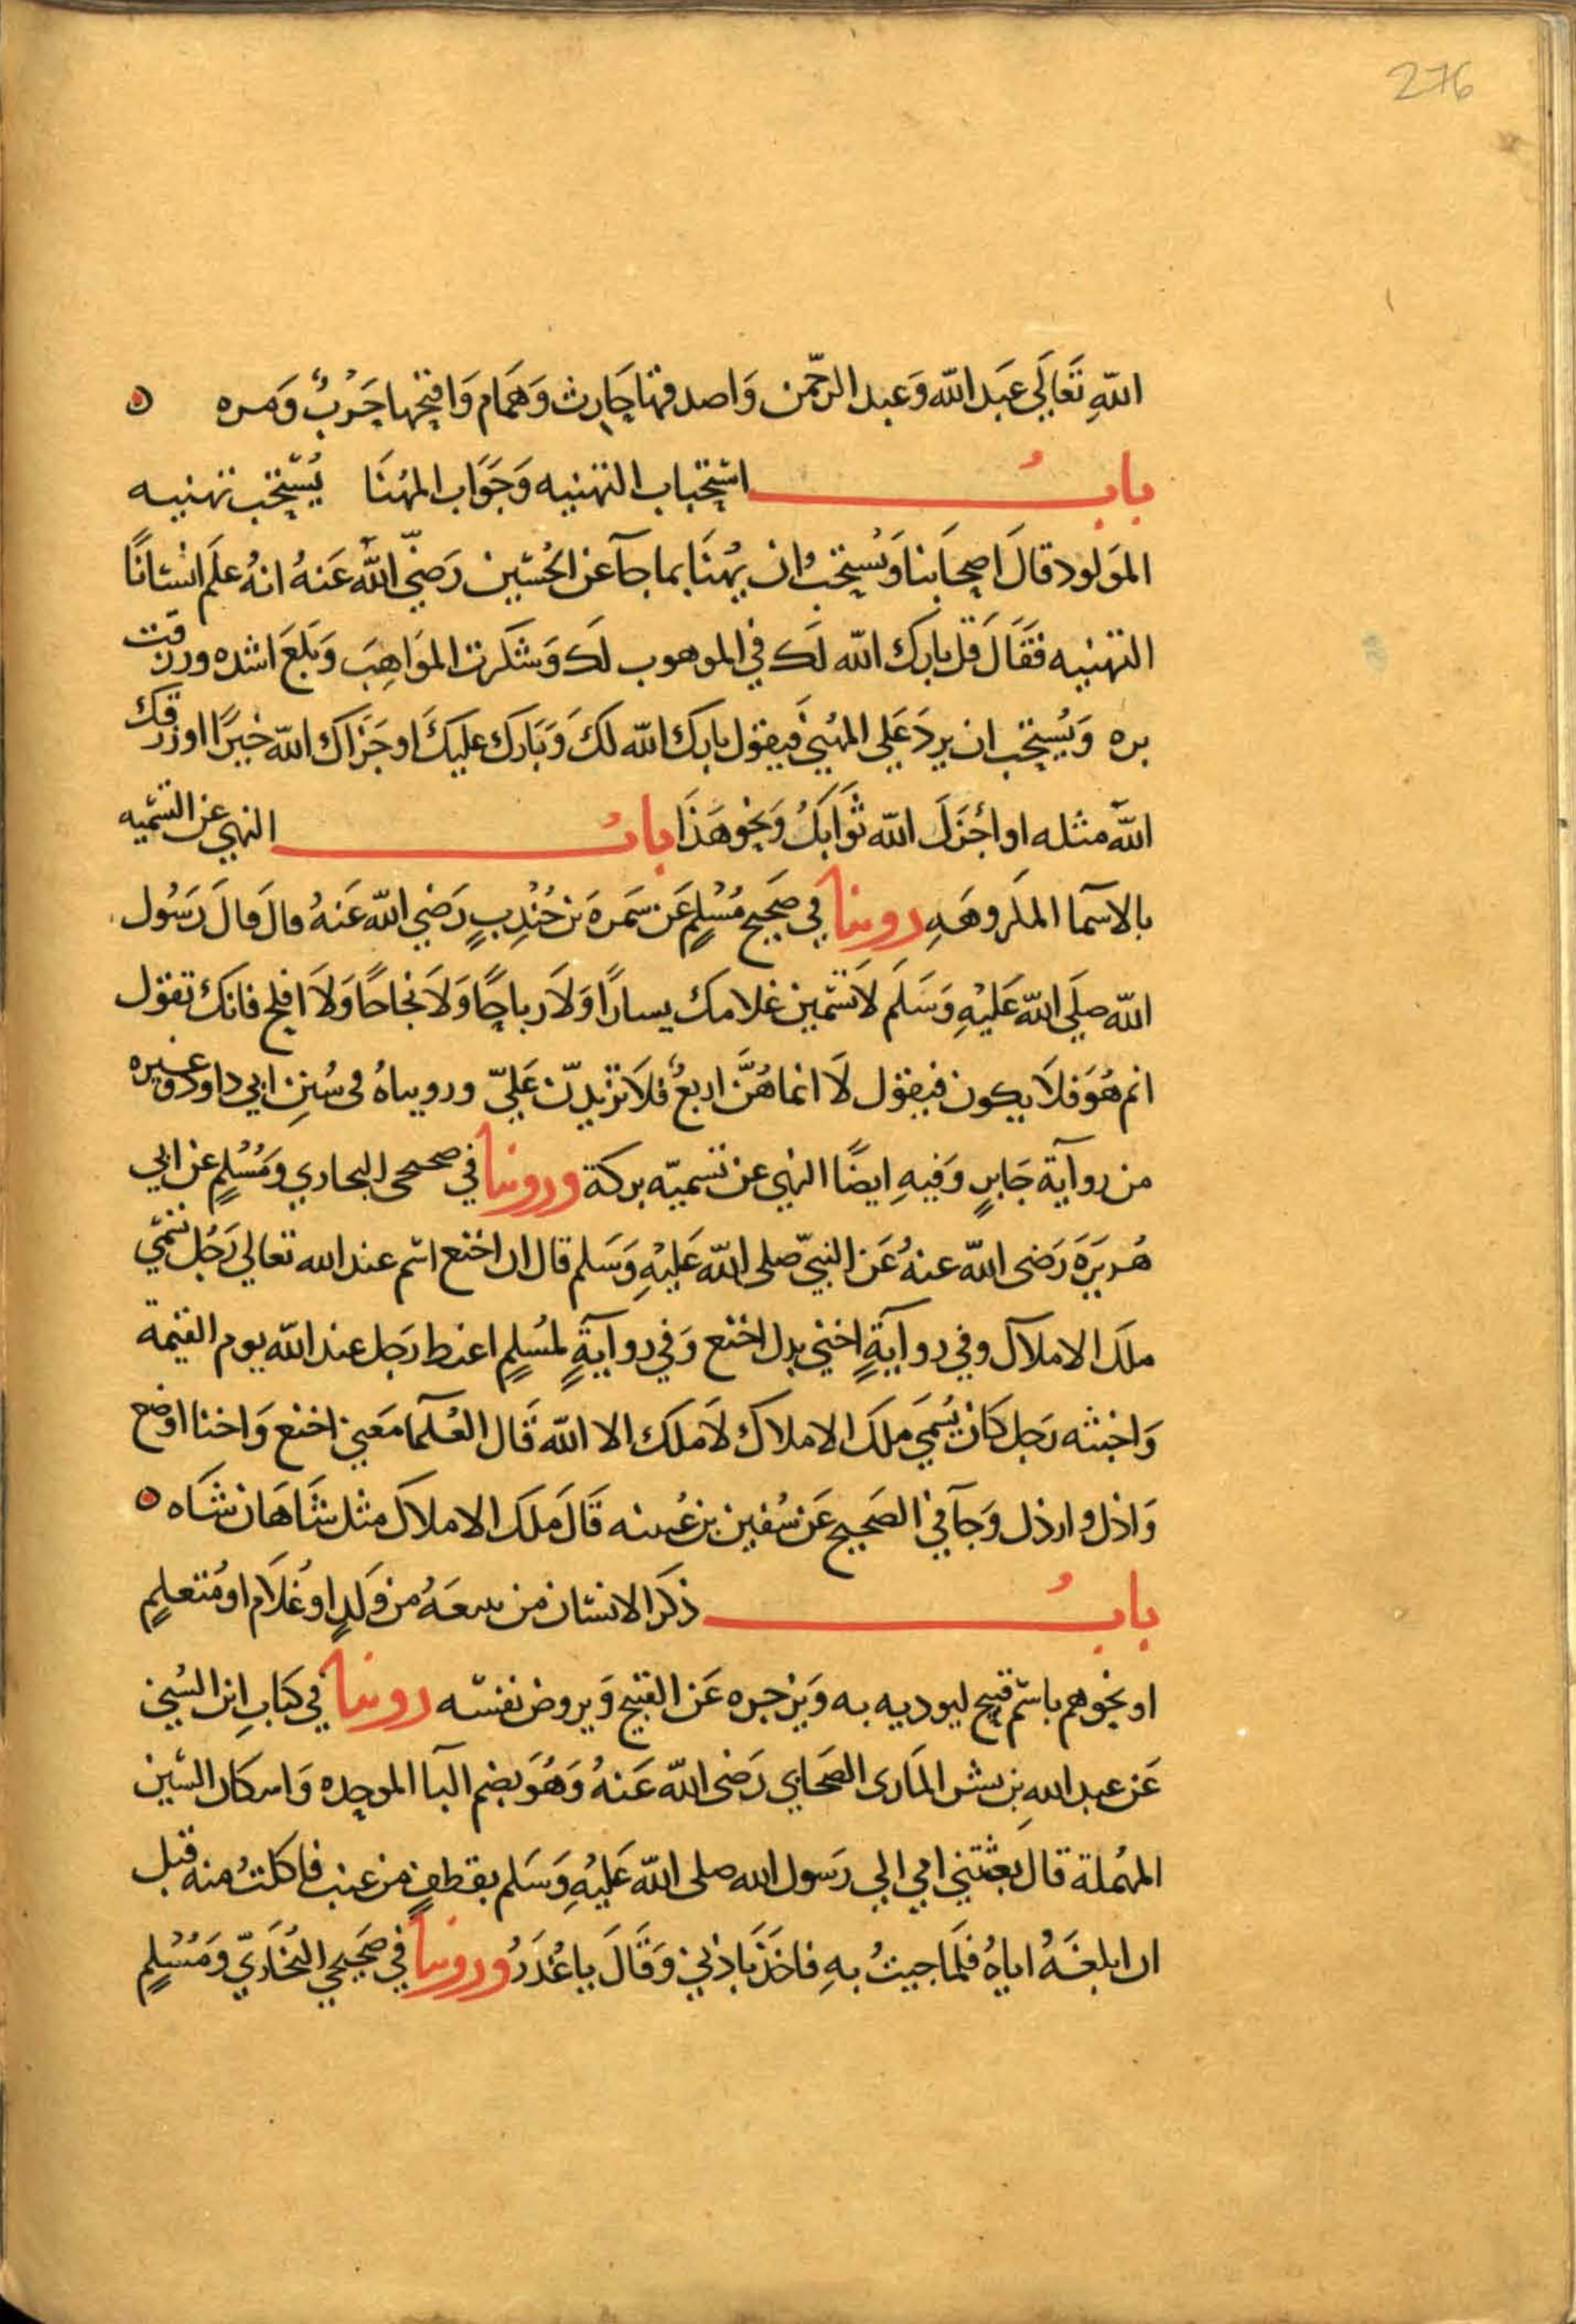 276
اللهِ تَعَالَي عَبَد الله وَعبد الرحّمن وَاصدقها حَارِث وَهَمَام وَاقبحها حَرْبٌ وَمره
بابُ استحباب التهنيه وَجَوَاب المهُنَا يُسْتحَب تهنيه
المَولود قالَ اصحَابنا وَيُستحَبُ ان يهُنَا بما جآ عَن الحُسَين رَضيّ اللهُ عَنهُ انهُ علَم انسَانًا
التهنيه فقَالَ قل بارَك الله لَك في الموهوب لَك وَشَكرت الموَاهِبَ وَبَلغَ اشده ورزقت
بره وَيُستحَب ان يردَ عَلي المهُني فَيقول بارك الله لكَ وَبَارَك عليَكَ او جَزَاك الله خيرًا او رزقك
اللهَ مثله او اجْزَلَ الله ثَوَابَكَ وَنحو هَذَا بابُ النهي عن التسَميه
بالاسَمآ المكروهَهِ روينا في صَحَيح مُسْلمٍ عَن سَمرهَ بن جُنْدِبٍ رَضي الله عَنهُ قال قالَ رَسُول
الله صلَي الله عَليْهِ وَسَلَم لَا تسَمّين غلامك يسارًا وَلَا رباحًا وَلَا نجاحًا وَلَا افلح فانك تقول
اثم هُوَ فلَا يكون فيقول لَا انما هُنَّ اربعٌ فلَا تزيدّن عَليّ ورويناهُ فى سُننِ ابي داود وغيره
من روآية جَابرٍ وَفيهِ ايضًا النهي عن تسميَه بركة وروينا في صحيحى البخاري وَمُسْلمٍ عن ابي
هُريَرَه رَضى الله عنهُ عَن النبيّ صلى الله عَليْهِ وَسَلم قال ان اخنع اسْم عند الله تعالي رَجُل تسَمّي
ملَك الاملَاك وفي روآيَةٍ اخني بدل اخنع وَفي روآيَةٍ لمُسْلمٍ اغيظ رَجل عند الله يوم القيمة
وَاخبثه رَجل كَان يُسَمَي ملَك الاملاك لَا ملَك الا الله قَال العُلَمآ معَني اخنع وَاخنا اوضع
وَاذل وارذل وَجآ في الصَحيح عَن سُفين بن عُيينه قَالَ مَلَك الاملَاك مثل شَاهَان شَاه
بابُ ذكَر الانسَان من يتبعَهُ من وَلَدٍ اوغُلَام او مُتعلمٍ
او نحوهم باسْم قبيح ليودبه به وَيزجره عَن القبيح وَيروض نفسَه روينا في كتابِ ابن السُني
عَن عبد اللهِ بن بسْر المازنى الصَحابي رَضى الله عَنهُ وَهُوَ بضم البآ الموحده وَاسكان السّين
المهُملة قال بعَثتني امي الي رَسول الله صلى الله عَليْهِ وَسَلم بقطفٍ من عنب فاكلتُ منه قبل
ان ابلغَهُ اياهُ فلَما جيتُ بهِ فاخَذ باذُني وَقَالَ ياغُدَرُ وروينا في صَحيحي البُخَاريّ وَمُسْلمٍ